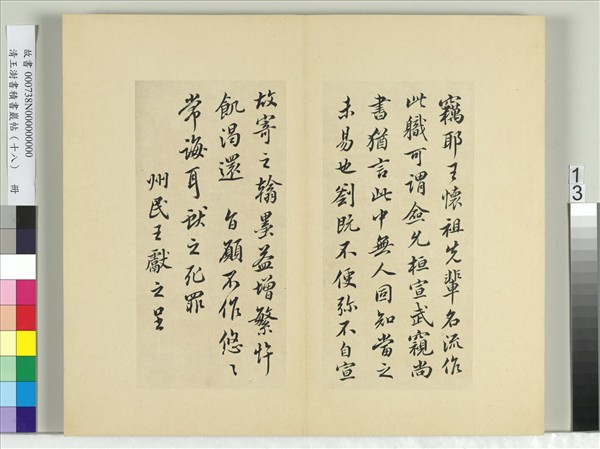 竊耶王懷祖先輩名流作
此職可謂僉允桓宣武窺尚
書猶言此中無人固知當之
未易也劉既不便弥不自宣
故寄之翰墨益增繁忤
飢渴還旨願不作悠〻
常誨耳獻之死罪
州民王獻之呈
故書 000738N000000000
清王澍書積書巖帖(十八) 冊
13